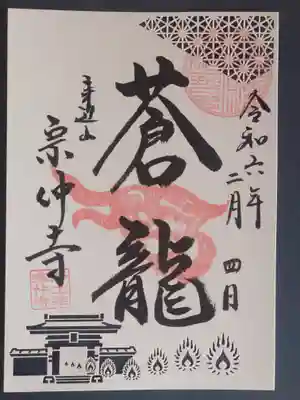 令和六年
二月
四日
蒼龍
宗仲寺